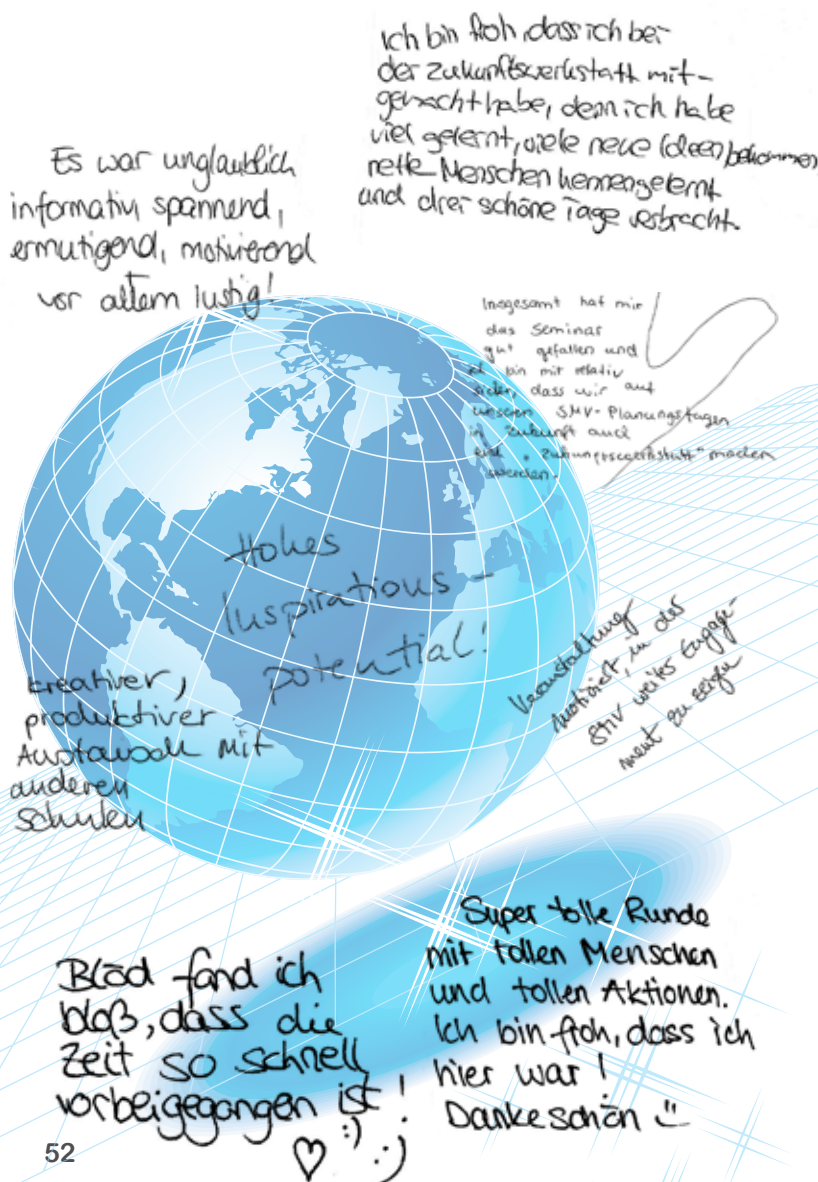 Ich bin froh, dass ich bei
der Zukunftswerkstatt mit-
gemacht habe, denn ich habe
viel gelernt, viele neue Ideen bekommen
nette Menschen kennengelernt
und drei schöne Tage verbracht.
Es war unglaublich
informativ, spannend,
ermutigend, motivierend
vor allem lustig!
Insgesamt hat mir
das Seminar
gut gefallen und
ich bin mir relativ
sicher, dass wir auf
unseren SMV-Planungstagen
in Zukunft auch
eine "Zukunftswerkstatt" machen
werden.
Hohes
Inspirations-
potential!
Veranstaltung
motiviert, in der
SMV weiter Engage-
ment zu zeigen
kreativer,
produktiver
Austausch mit
anderen
Schulen
Blöd fand ich
bloß, dass die
Zeit so schnell
vorbeigegangen ist!
♡ :) :)
Super tolle Runde
mit tollen Menschen
und tollen Aktionen.
Ich bin froh, dass ich
hier war!
Dankeschön
52